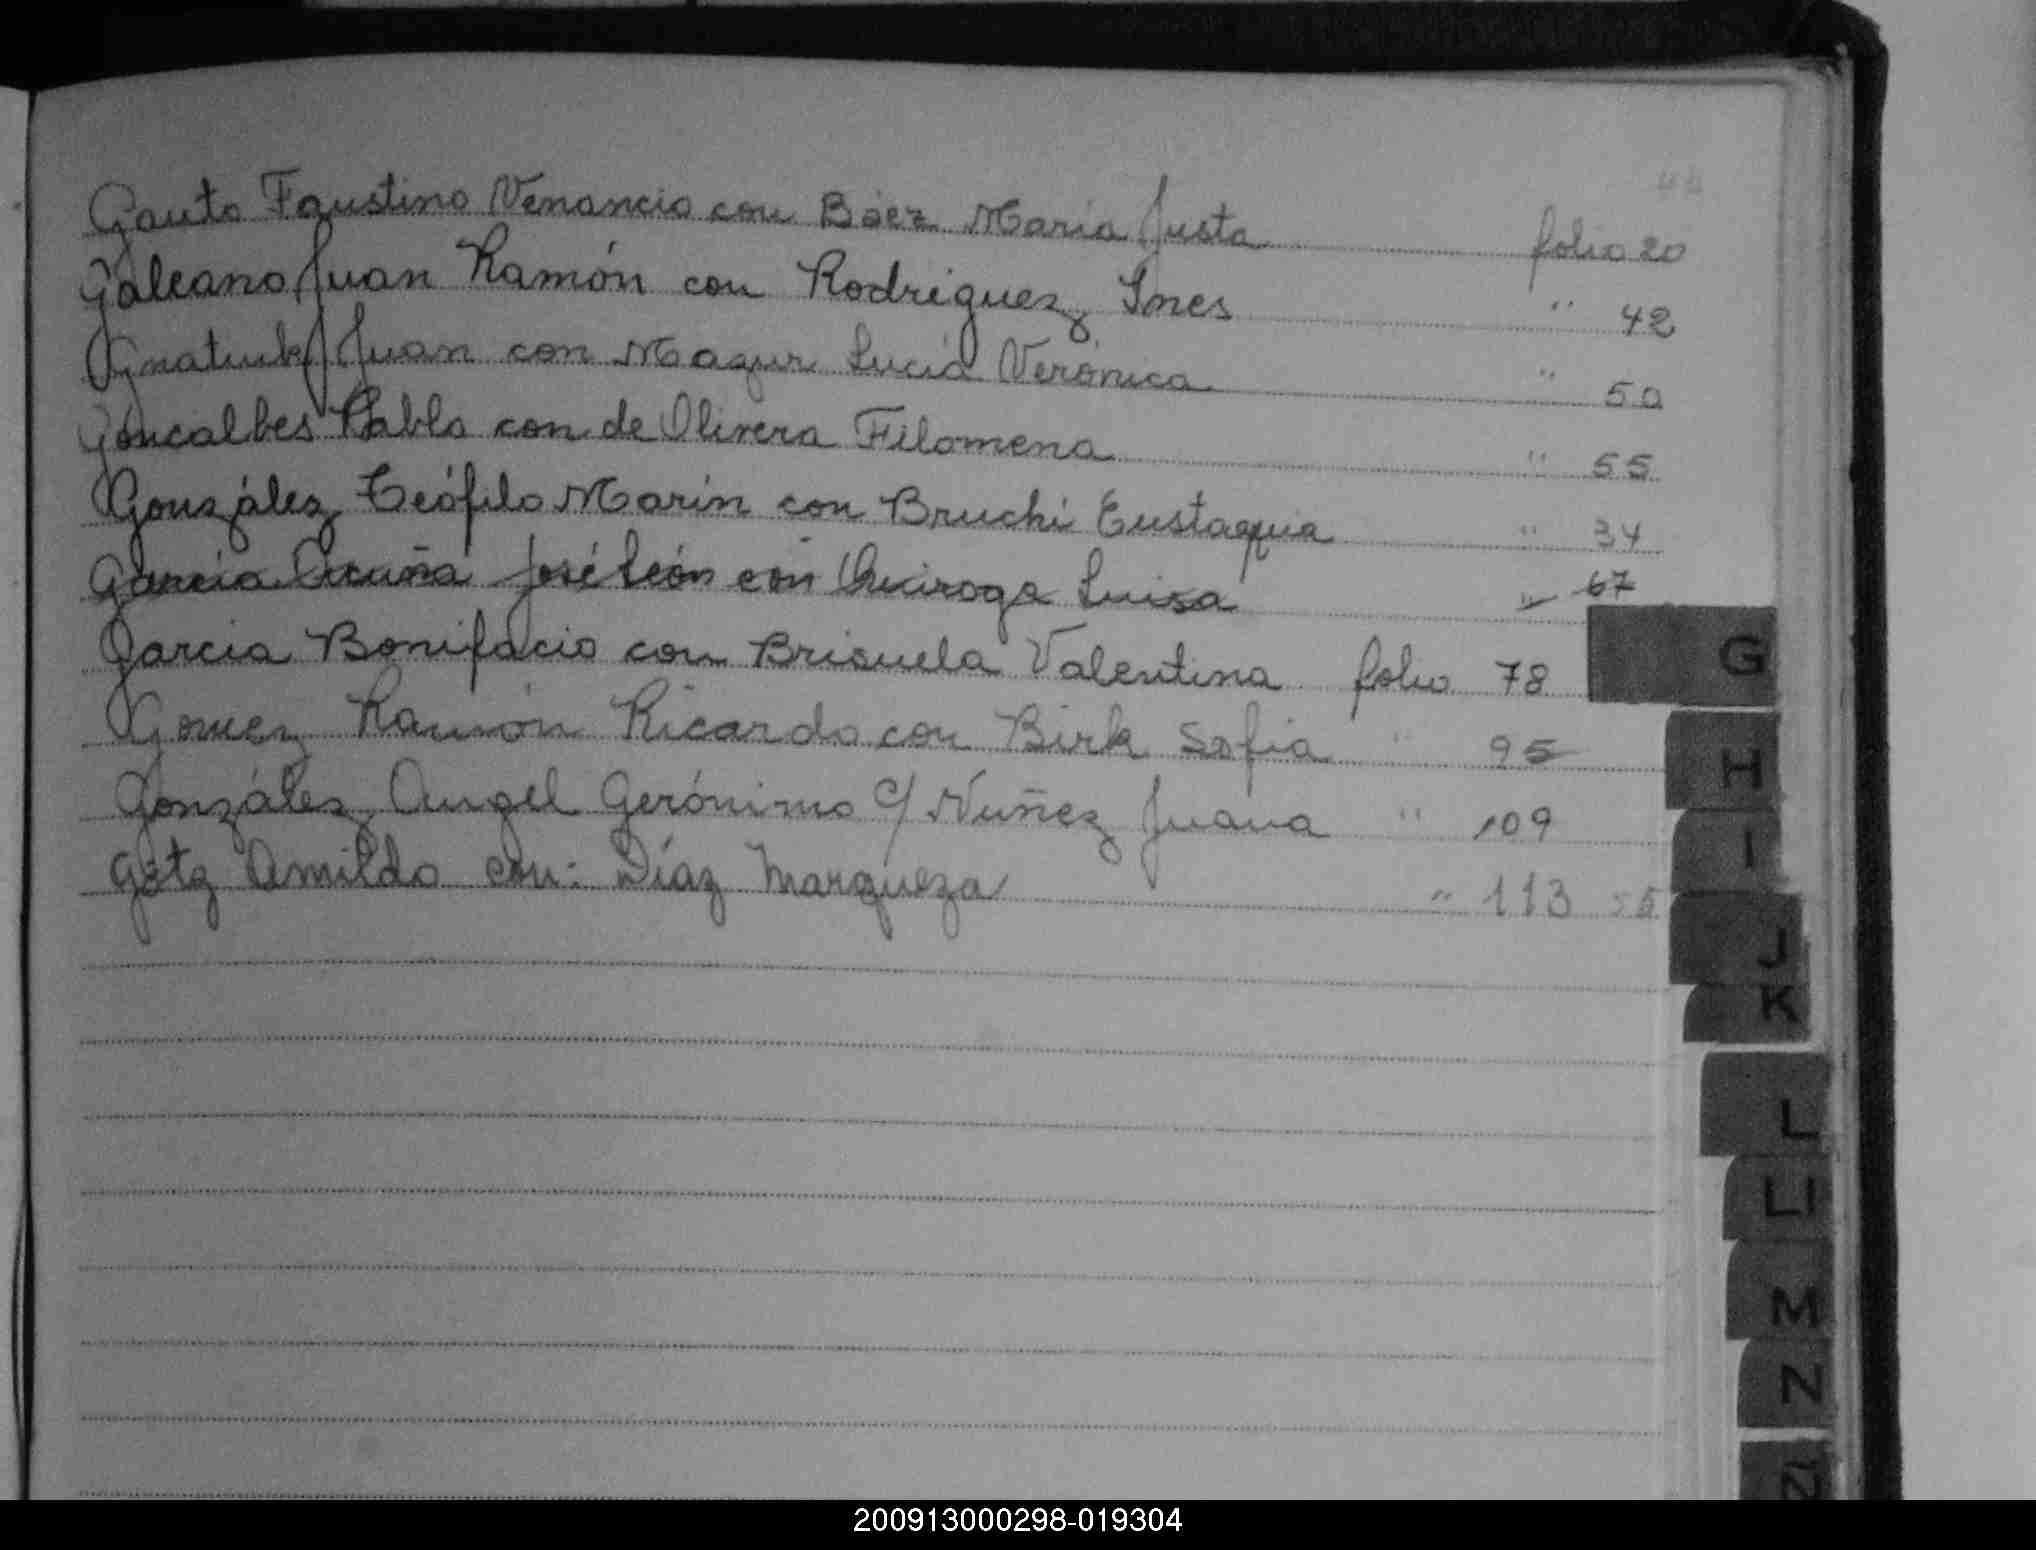 Gauto Faustino Venancio con Báez María Justa folio 20
Galeano Juan Ramón con Rodriguez Ines " 42
Gnatiuk Juan con Mazur Lucía Verónica " 50
Goncalbes Pablo con de Olivera Filomena " 55
González Teófilo Marin con Bruchi Eustaquia " 34
Garcia Acuña José León con Quiroga Luisa " 67
Garcia Bonifacio con Brisuela Valentina folio 78
Gomez Ramón Ricardo con Birk Sofia " 95
González Angel Gerónimo c/ Nuñez Juana " 109
Götz Amildo con: Díaz Marqueza " 113
G
H
I
J
K
L
Ll
M
N
Ñ
200913000298-019304